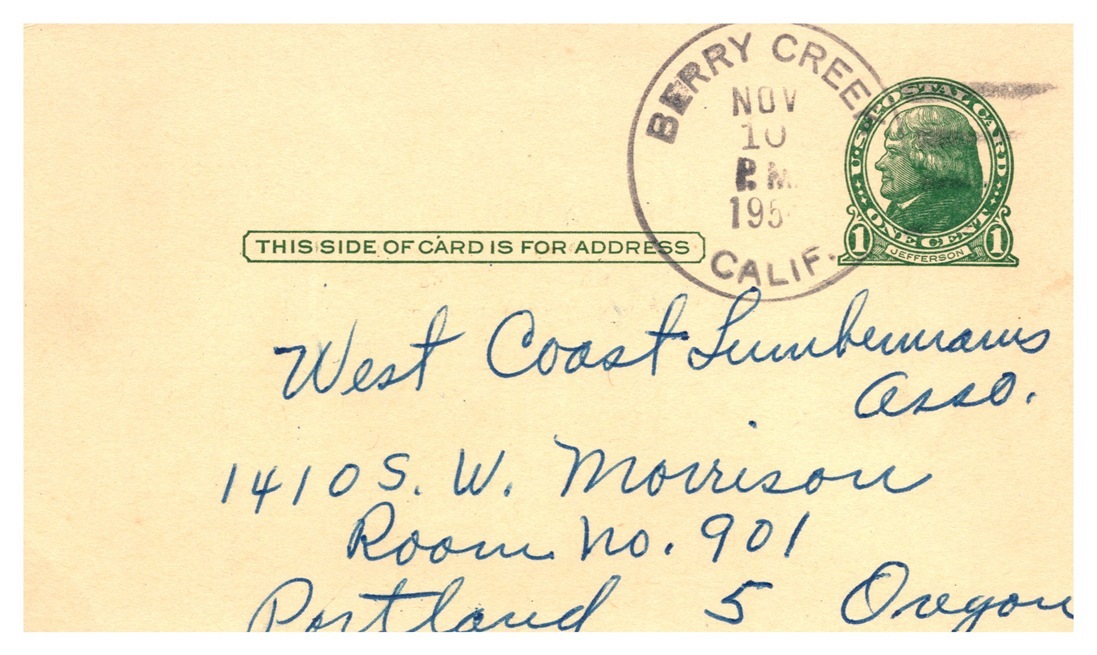 BERRY CREEK
NOV
10
P.M.
195
CALIF.
U.S. POSTAL CARD
ONE CENT
1 1
JEFFERSON
THIS SIDE OF CARD IS FOR ADDRESS
West Coast Lumbermans
Asso.
1410 S. W. Morrison
Room No. 901
Portland 5 Oregon